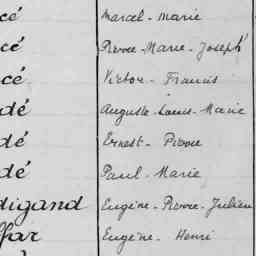 cé Marcel - Marie
cé Pierre - Marie - Joseph
cé Victor - Francis
dé Auguste - Louis - Marie
dé Ernest - Pierre
dé Paul - Marie
digand Eugène - Pierre - Julien
ffar Eugène - Henri